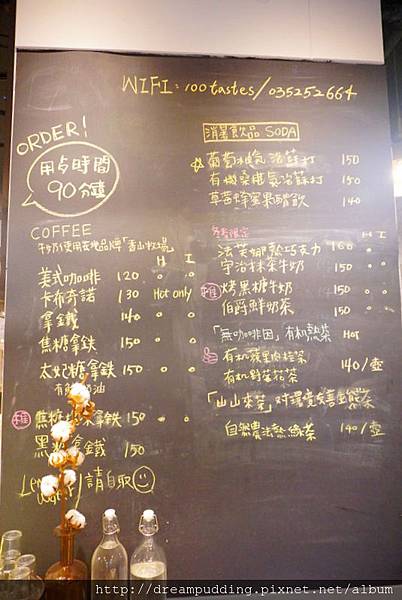 WIFI: 100tastes/035252664
ORDER!
用餐時間
90分鐘
COFFEE
牛奶使用在地品牌「香山牧場」
H I
美式咖啡 120 o o
卡布奇諾 130 Hot only
拿鐵 140 o o
焦糖拿鐵 150 o o
太妃糖拿鐵 150 o o
推 焦糖 拿鐵 150
黑 拿鐵 150
請自取
消暑飲品 SODA
葡萄柚氣泡蘇打 150
有機桑椹氣泡蘇打 150
草莓蜂蜜果醋飲 140
冬季限定 H I
法芙娜熱巧克力 160 o
宇治抹茶牛奶 150 o o
推 烤黑糖牛奶 150 o o
伯爵鮮奶茶 150 o o
「無咖啡因」有機熱茶 Hot
有機蘋果肉桂茶
140/壺
有機野菊花茶
「山山來茶」對環境友善
自然農法 綠茶 140/壺
http://dreampudding.pixnet.net/album